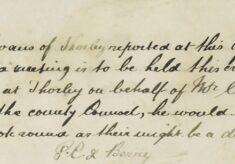 evans of Thorley reported at this
a meeting is to be held this
at Thorley on behalf of Mr C
the county Council, he would
ook round as their might be a d
P.C. 2 Berry